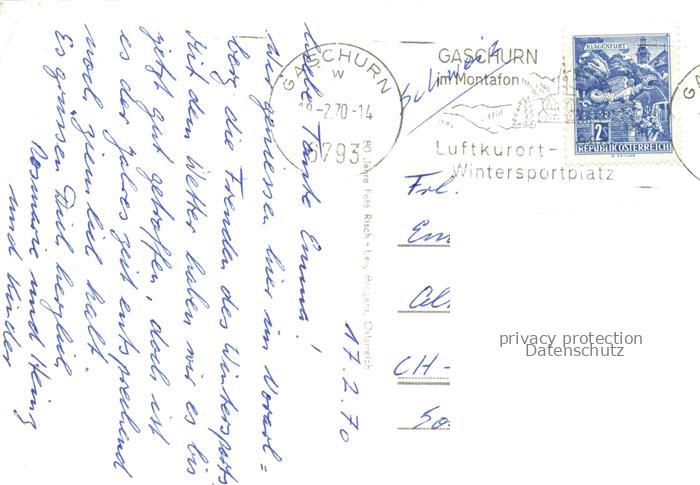 17.2.70
Liebe Tante Emma!
Wir geniessen hier im Vorarl=
berg die Freuden des Wintersports
Mit dem Wetter haben wir es bis
jetzt gut getroffen, doch ist
es der Jahreszeit entsprechend
noch ziemlich kalt.
Es grüssen Dich herzlich
Rosmarie und Heinz
und Kinder
80 Jahre Foto Risch-Lau, Bregenz, Österreich
GASCHURN
W
18-2.70-14
6793
GASCHURN
im Montafon
Luftkurort-
Wintersportplatz
Schweiz
KLAGENFURT
2
REPUBLIK ÖSTERREICH
Frl.
CH-
privacy protection
Datenschutz